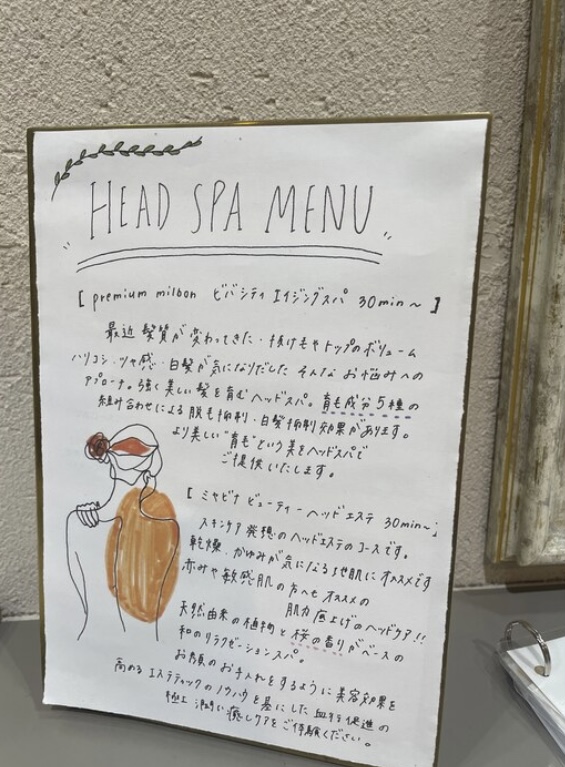 HEAD SPA MENU
[ premium milbon ビバシティ エイジングスパ 30min〜 ]
最近 髪質が変わってきた・抜け毛やトップのボリューム
ハリコシ・ツヤ感・白髪が気になりだした そんな お悩みへの
アプローチ。強く美しい髪を育むヘッドスパ。育毛成分5種の
組み合わせによる脱毛抑制・白髪抑制効果があります。
より美しい"育毛"という美をヘッドスパで
ご提供いたします。
[ ミヤビナ ビューティーヘッドエステ 30min〜]
スキンケア発想のヘッドエステのコースです。
乾燥・かゆみが気になる地肌にオススメです
赤みや敏感肌の方へも オススメの
肌力底上げのヘッドケア!!
天然由来の植物と桜の香りがベースの
和のリラクゼーションスパ。
お顔のお手入れをするように美容効果を
高める エステティックのノウハウを基にした血行促進の
極上 癒しケアをご体験ください。